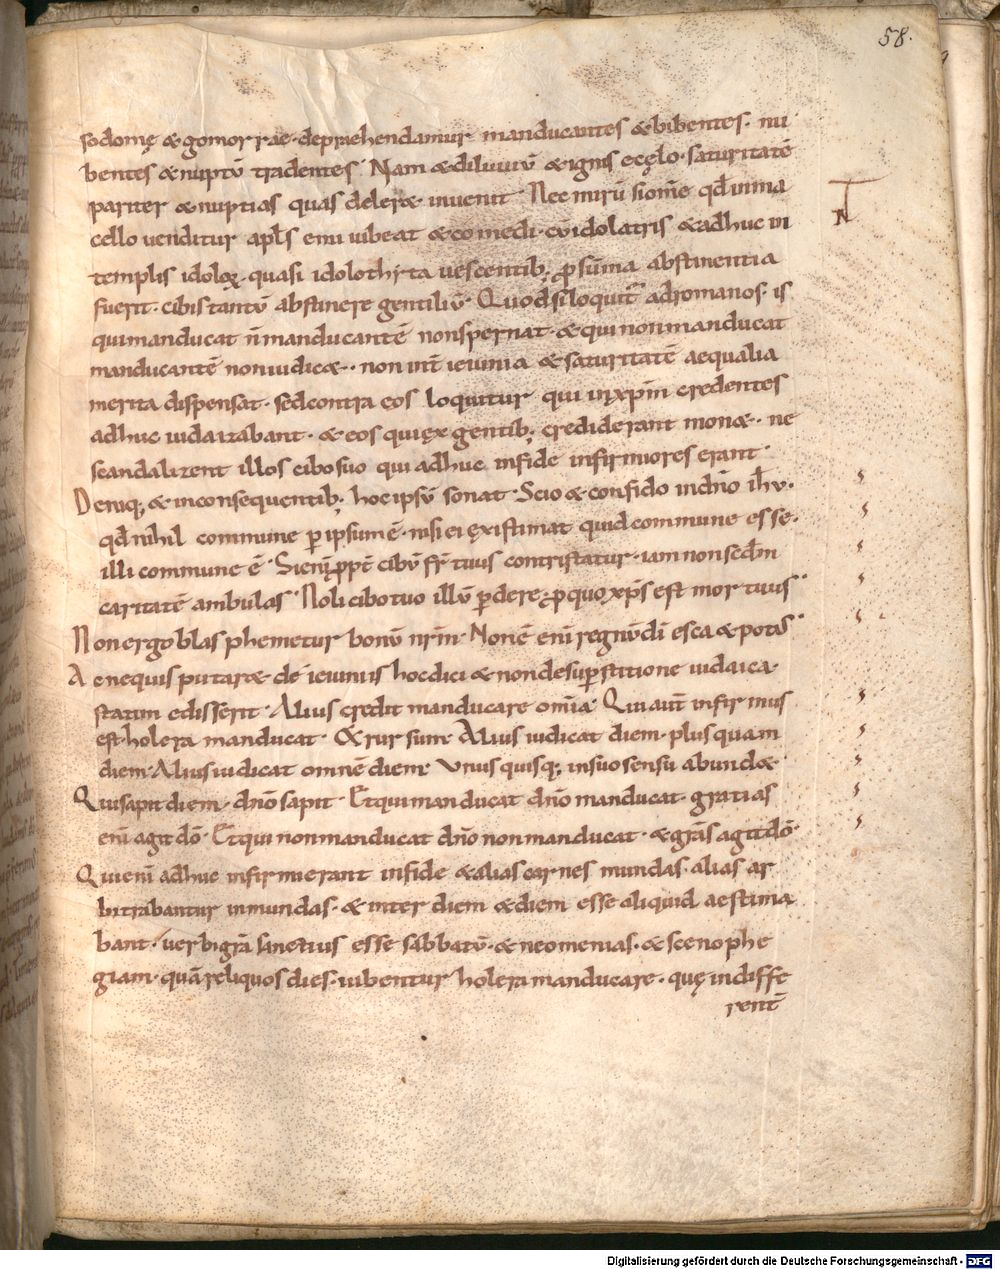 58.
sodomę & gomorrae · deprẹhendamur manducantes & bibentes · nu
bentes & nuptū tradentes Nam & diluuiū & ignis ecęlo · saturitatē
pariter & nuptias quas deler& inuenit Nec mirū siom̄e qđ inma
cello uenditur apl̄s emi iubeat & comedi · cū idolatris & adhuc in
templis idoloꝝ · quasi idolothyta uescentib; ꝓ sūma abstinentia
fuerit · cibis tantū abstinere gentiliū · Quod si loquit᷑ adromanos · is
quimanducat n̄ manducantē nonspernat · & qui nonmanducat
manducantē noniudic& · non int̄ ieiunia & saturitatē aequalia
merita dispensat · sedcontra eos loquitur qui inxp̄m credentes
adhuc iudaizabant · & eos quięx gentib; crediderant mon& · ne
scandalizent illos cibo suo qui adhuc infide infirmiores erant
Deniq; & inconsequentib; hoc ipsū sonat · Scio & confido indn̄o ih̄u ·
qđ nihil commune ꝑ ipsum ē · nisi ei ęxistimat quid commune esse ·
illi commune ē Sienī ꝓpt̄ cibū fr̄ tuus contristatur · iam non scdm̄
caritatē ambulas Noli cibo tuo illū ꝑdere · ꝓ quo xp̄s est mortuus
Non ergo blasphemetur bonū nr̄m · Non ē enī regnū dī esca & pot᷒
Ac nequis putar& · de ieiuniis hoc dici & non desuꝑstitione iudaica ·
statim edisserit · Alius credit manducare omīa Qui aut̄ infirmus
est · holera manducat · & rursum Alius iudicat diem · plus quam
diem · Alius iudicat omnē diem · Vnusquisq; insuo sensu abund&
Quisapit diem · dn̄o sapit · Etqui manducat dn̄o manducat · gratias
enī agit dō · Etqui nonmanducat dn̄o nonmanducat · & gr̄as agit dō ·
Quienī adhuc infirmi erant infide & alias carnes mundas · alias ar
bitrabantur inmundas · & inter diem & diem esse aliquid aestima
bant · uerbi gr̄a sanctius esse sabbatū · & neomenias · & scenophe
giam · quā reliquos dies · iubentur holera manducare · quę indiffe
rent̄
Digitalisierung gefördert durch die Deutsche Forschungsgemeinschaft - DFG